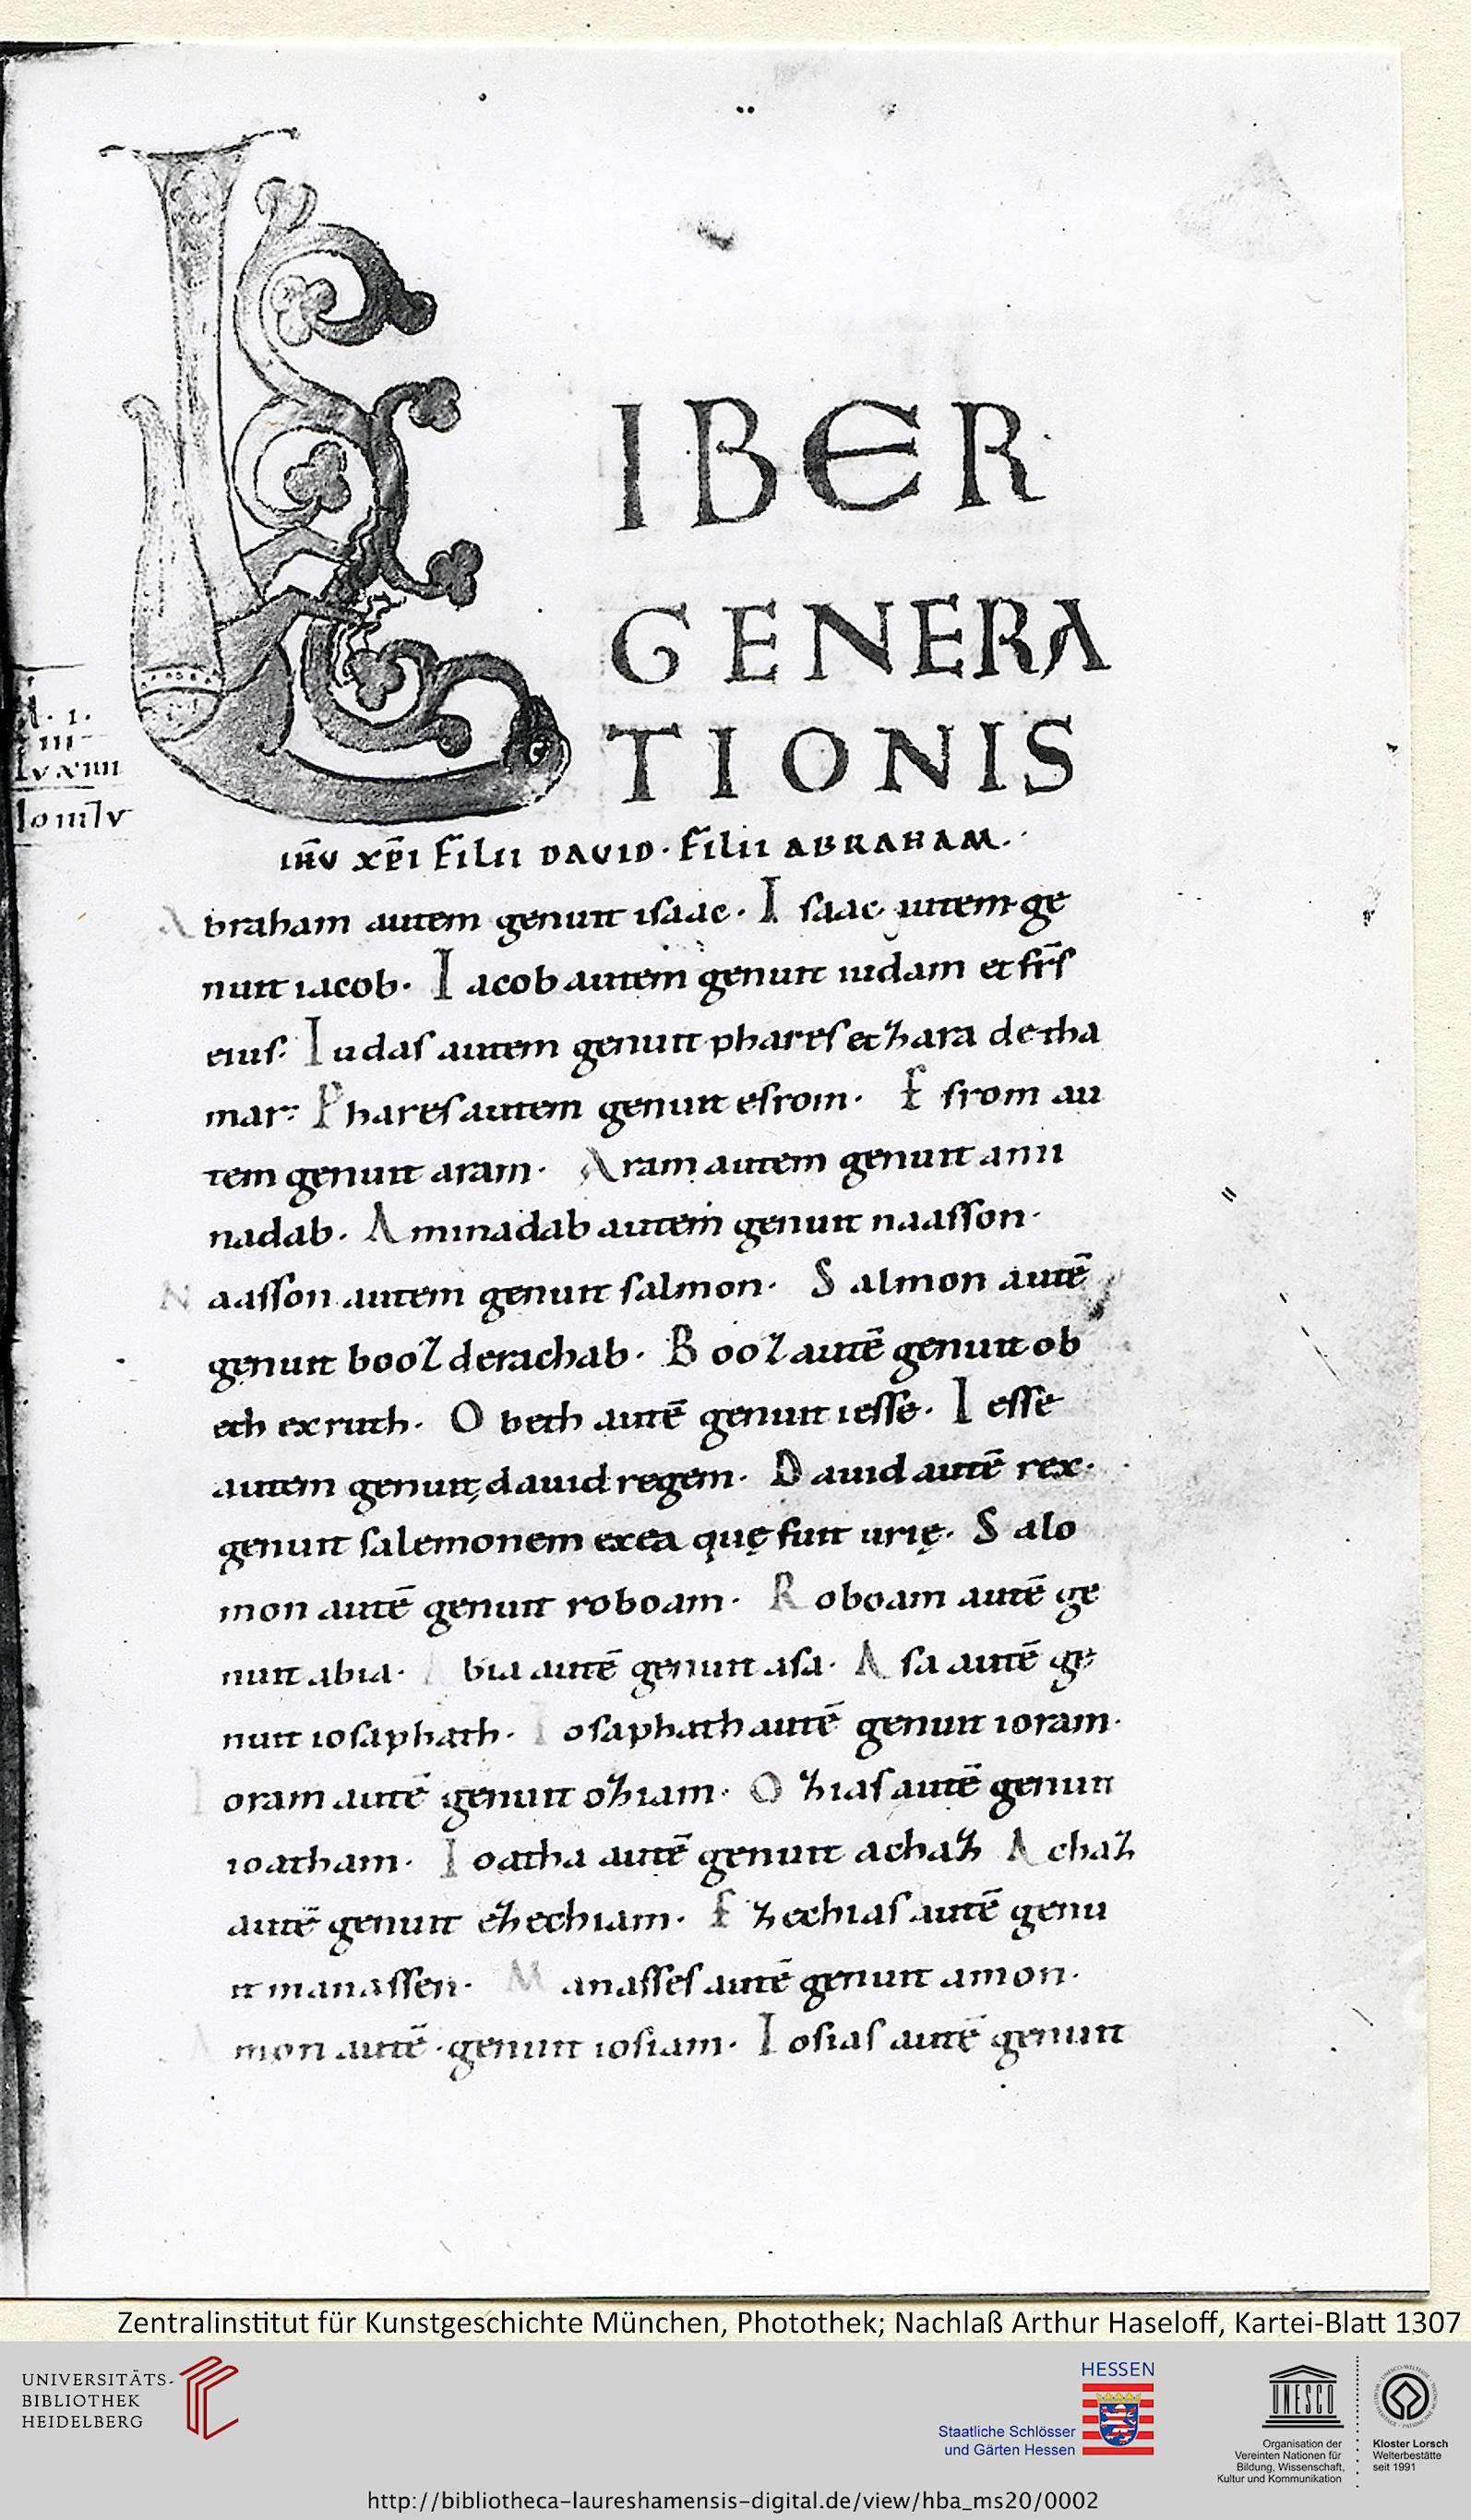 LIBER
GENERA
TIONIS
IHV̅ XP̅I FILII DAVID · FILII ABRAHAM ·
Abraham autem genuit isaac · Isaac autem ge
nuit iacob · Iacob autem genuit iudam et fr̅s
eius · Iudas autem genuit phares et zara de tha
mar · Phares autem genuit esrom · Esrom au
tem genuit aram · Aram autem genuit ami
nadab · Aminadab autem genuit naasson ·
Naasson autem genuit salmon · Salmon autē
genuit booz de rachab · Booz autē genuit ob
eth ex ruth · Obeth autē genuit iesse · Iesse
autem genuit david regem · David autē rex ·
genuit salemonem ex ea quę fuit urię · Salo
mon autē genuit roboam · Roboam autē ge
nuit abia · Abia autē genuit asa · Asa autē ge
nuit iosaphath · Iosaphath autē genuit ioram ·
Ioram autē genuit oziam · Ozias autē genuit
ioatham · Ioatha autē genuit achaz Achaz
autē genuit ezechiam · Ezechias autē genu
it manassen · Manasses autē genuit amon ·
Amon autē · genuit iosiam · Iosias autē genuit
Zentralinstitut für Kunstgeschichte München, Photothek; Nachlaß Arthur Haseloff, Kartei-Blatt 1307
UNIVERSITÄTS-
BIBLIOTHEK
HEIDELBERG
HESSEN
Staatliche Schlösser
und Gärten Hessen
UNESCO
Organisation der
Vereinten Nationen für
Bildung, Wissenschaft,
Kultur und Kommunikation
Kloster Lorsch
Welterbestätte
seit 1991
http://bibliotheca-laureshamensis-digital.de/view/hba_ms20/0002